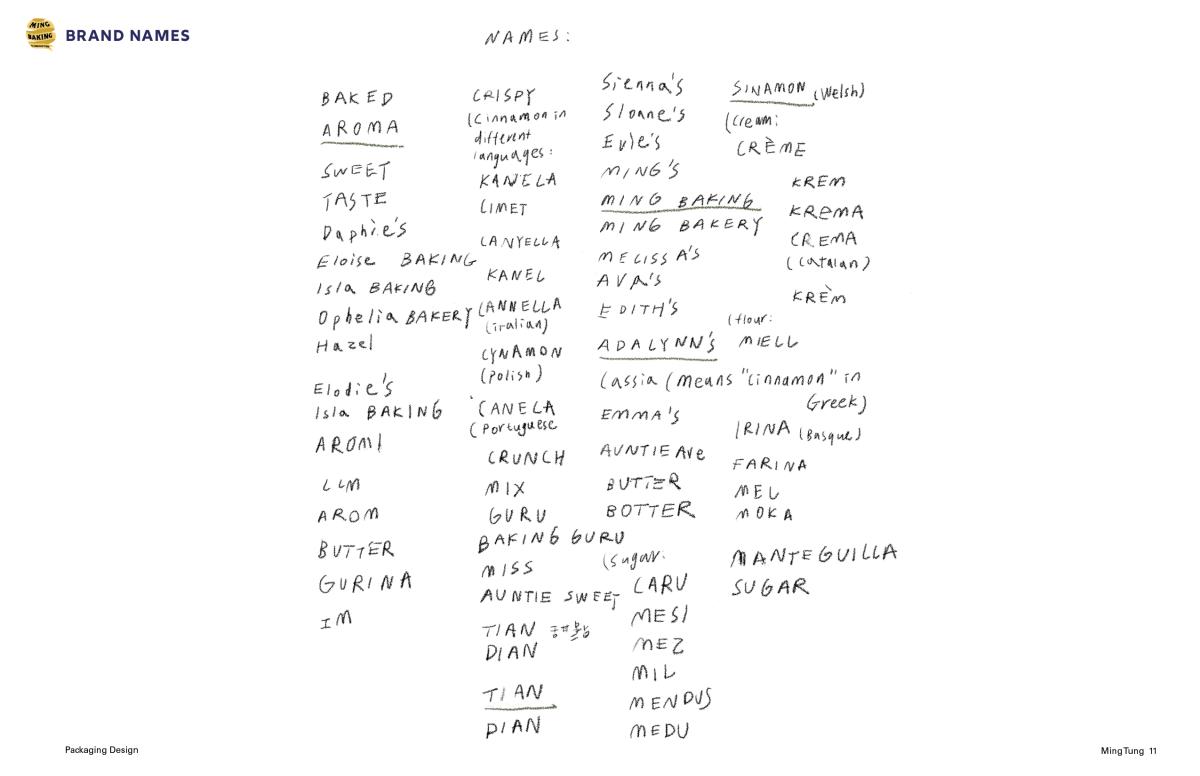 MING
BAKING
BRAND NAMES
NAMES:
BAKED
AROMA
SWEET
TASTE
Daphie's
Eloise BAKING
Isla BAKING
Ophelia BAKERY
Hazel
Elodie's
Isla BAKING
AROMI
LLM
AROM
BUTTER
GURINA
IM
CRISPY
(Cinnamon in
different
languages:
KANELA
LIMET
CANYELLA
KANEL
CANNELLA
(italian)
CYNAMON
(Polish)
CANELA
(Portuguese
CRUNCH
MIX
GURU
BAKING GURU
MISS
AUNTIE SWEET
TIAN
DIAN
TIAN
DIAN
Sienna's
Sloane's
Evie's
MING'S
MING BAKING
MING BAKERY
MELISSA'S
AVA'S
EDITH'S
ADALYNN'S
Cassia (means "cinnamon" in
Greek)
EMMA'S
AUNTIE AVE
BUTTER
BOTTER
(sugar:
CARU
MESI
MEZ
MIL
MENDUS
MEDU
SINAMON (Welsh)
(cream:
CRÈME
KREM
KREMA
CREMA
(Catalan)
KRÈM
(flour:
MIELL
IRINA (Basque)
FARINA
MEL
MOKA
MANTEGUILLA
SUGAR
Packaging Design
MingTung 11